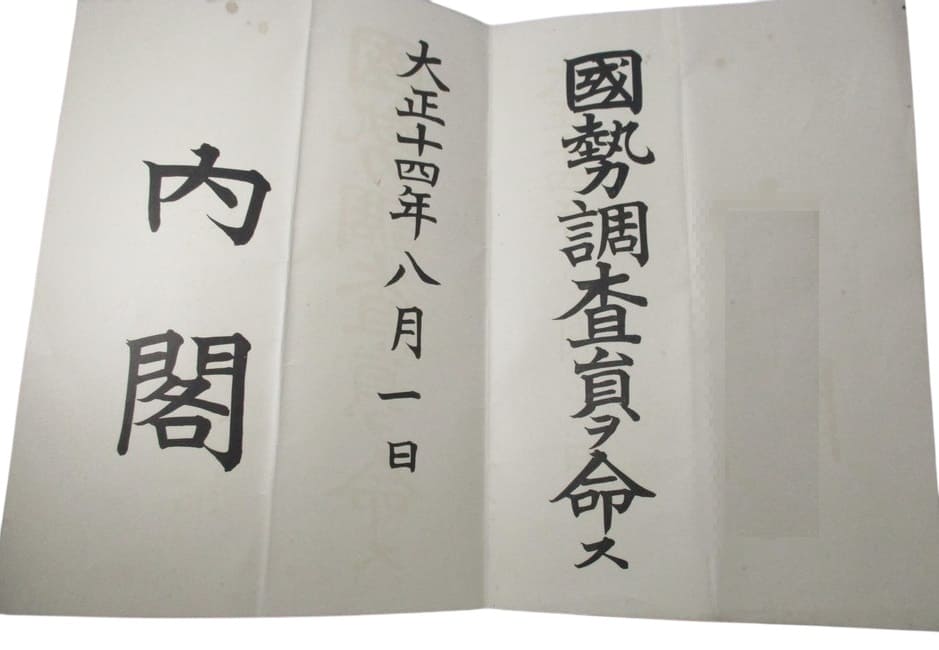 國勢調査員ヲ命ス
大正十四年八月一日
内閣